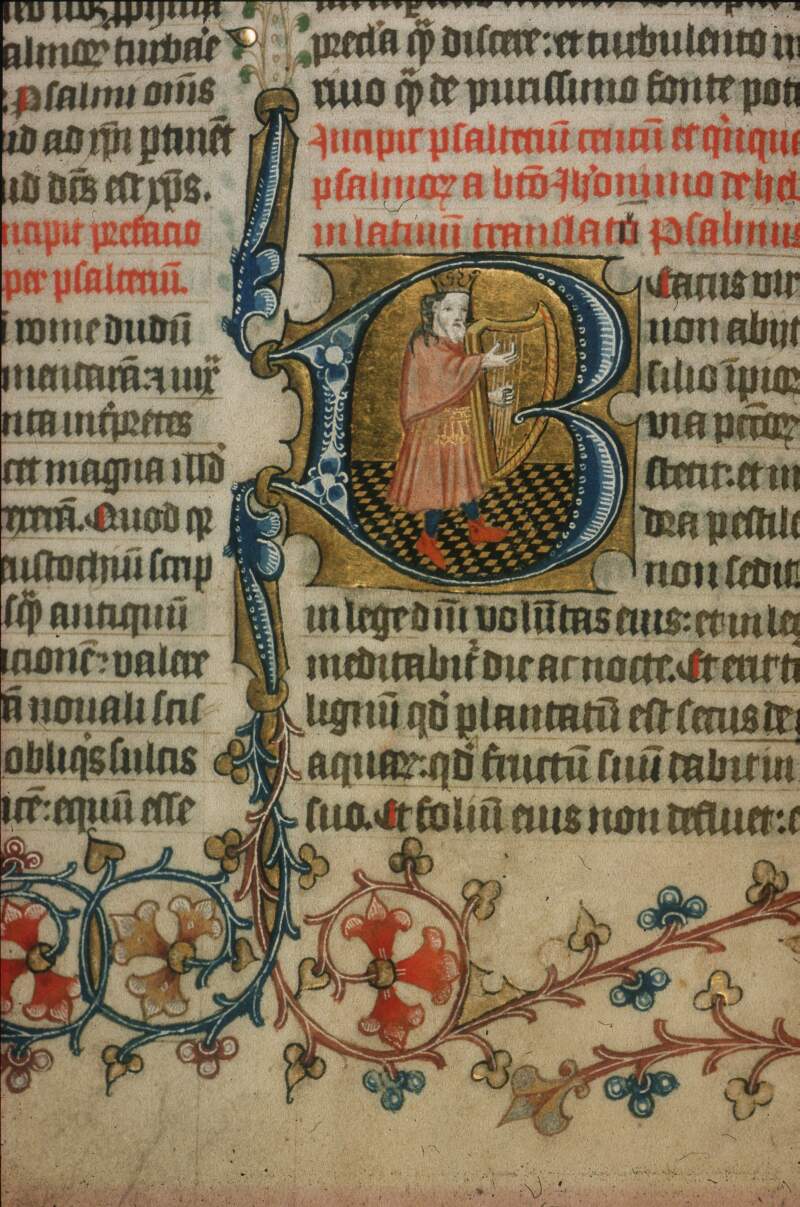 almoꝝ turbare
psalmi om̄s
ud ad xp̄i ꝑtinēt
est xp̄s.
ncipit prefacio
per psalteriū.
rome dudū
int̄pretes
cet magna
rexerā. Quod
eustochiū scrip
antiquū
icionē: valere
nouali
obliqͥs sulcis
icē: equū esse
discere: et turbulento
riuo q̄ꝫ de purissimo fonte pota
Incipit psalteriū centū et qͥnqua
psalmoꝝ a bt̄o Iheronimo de heb
in latinū translatū Psalmus
Eatus vir
non abijt
silio īpioꝝ
via pctōꝝ
stetit: et in
dra pestile
non sedit:
in lege dn̄i volūtas eius: et in leg
meditabit᷑ die ac nocte. Et erit t
lignū qd̓ plantatū est secus de
aquaꝝ: qd̓ fructū suū dabit in
suo. Et foliū eius non defluet: e